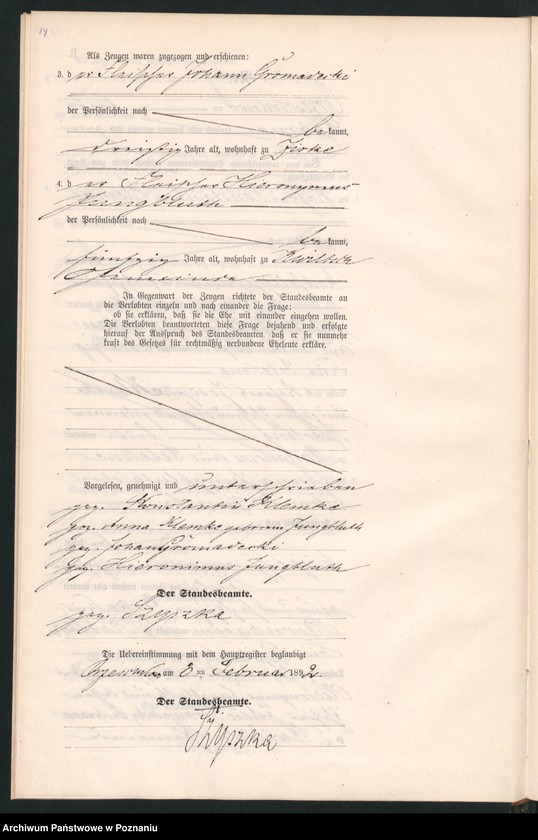 14
Als Zeugen waren zugezogen und erschienen:
3. der Fleischer Johann Gromadecki
der Persönlichkeit nach
bekannt,
dreißig Jahre alt, wohnhaft zu Zirke
4. der Fleischer Hieronymus
Jungbluth
der Persönlichkeit nach
bekannt,
fünfzig Jahre alt, wohnhaft zu
Gemeinde
In Gegenwart der Zeugen richtete der Standesbeamte an
die Verlobten einzeln und nach einander die Frage:
ob sie erklären, daß sie die Ehe mit einander eingehen wollen.
Die Verlobten beantworteten diese Frage bejahend und erfolgte
hierauf der Ausspruch des Standesbeamten, daß er sie nunmehr
kraft des Gesetzes für rechtmäßig verbundene Eheleute erkläre.
Vorgelesen, genehmigt und unterschrieben
gez. Konstantin Klemke
gez. Anna Klemke geborene Jungbluth
gez. Johann Gromadecki
gez. Hieronimus Jungbluth
Der Standesbeamte.
gez. Szyszka
Die Uebereinstimmung mit dem Hauptregister beglaubigt
am 3 ten Februar 1892
Der Standesbeamte.
Szyszka
Archiwum Państwowe w Poznaniu